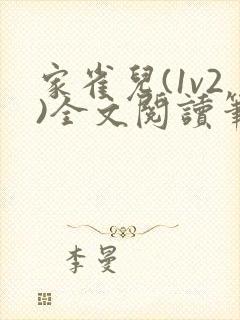 家雀兒(1v2
)全文閱讀筆
李曼